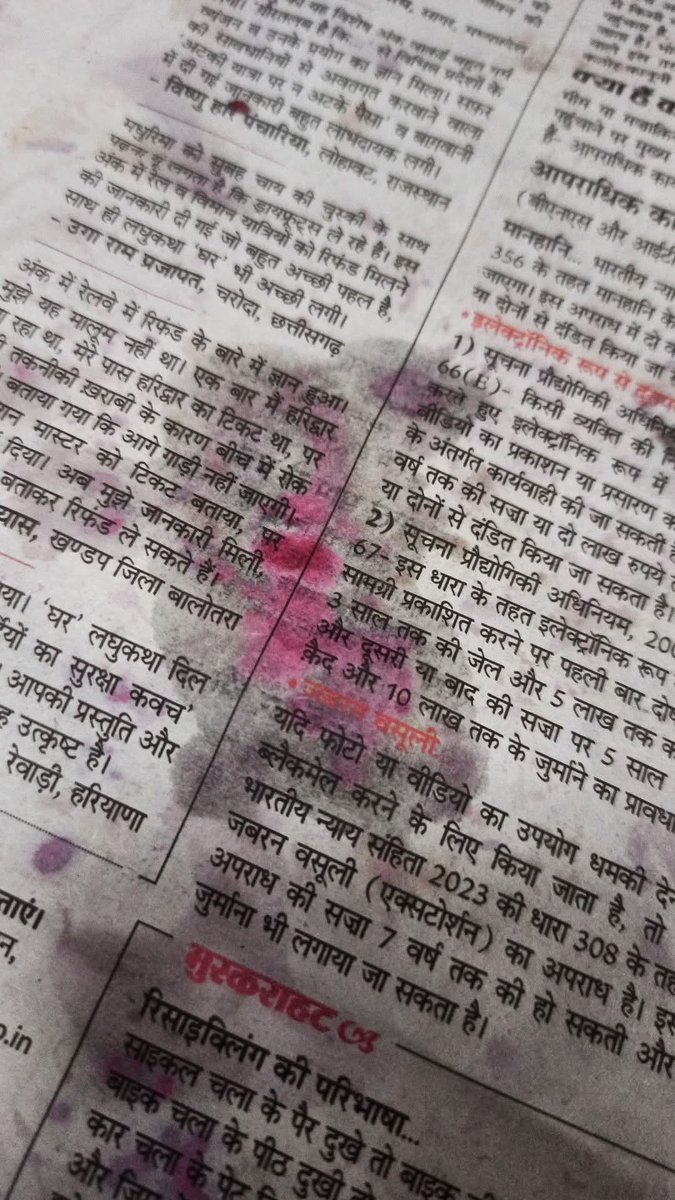 व इनके प्रयोग का ज्ञान मिला। सफर
की सावधानियों से अवगत करवाने वाला
अटकी यात्रा पर न अटके पैसा' व बागवानी
में दी गई जानकारी बहुत लाभदायक लगी।
- विष्णु हरि पंचारिया, लोहावट, राजस्थान
मधुरिमा को सुबह चाय की चुस्की के साथ
लगता है कि ड्रायफ्रूट्स ले रहे हैं। इस
अंक में रेल व विमान यात्रियों को रिफंड मिलने
की जानकारी दी गई जो बहुत अच्छी पहल है,
साथ ही लघुकथा 'घर' भी अच्छी लगी।
- उगा राम प्रजापत, चरोदा, छत्तीसगढ़
अंक में रेलवे में रिफंड के बारे में ज्ञान हुआ।
मुझे यह मालूम नहीं था। एक बार मैं हरिद्वार
रहा था, मेरे पास हरिद्वार का टिकट था, पर
तकनीकी खराबी के कारण बीच में रोक
बताया गया कि आगे गाड़ी नहीं जाएगी।
मास्टर को टिकट बताया, पर
दिया। अब मुझे जानकारी मिली,
बताकर रिफंड ले सकते हैं।
खण्डप जिला बालोतरा
'घर' लघुकथा दिल
का सुरक्षा कवच'
आपकी प्रस्तुति और
उत्कृष्ट है।
रेवाड़ी, हरियाणा
.in
क्या हैं
पहुंचाने पर मुख्य
है- आपराधिक
आपराधिक
(बीएनएस और
मानहानि... भारतीय
356 के तहत मानहानि के
जाएगा। इस अपराध में दो
या दोनों से दंडित किया जा
• इलेक्ट्रॉनिक रूप से
1) सूचना प्रौद्योगिकी
66(E)- किसी व्यक्ति की
करते हुए इलेक्ट्रॉनिक रूप में
वीडियो का प्रकाशन या प्रसारण
के अंतर्गत कार्यवाही की जा सकती
वर्ष तक की सज़ा या दो लाख रुपये
या दोनों से दंडित किया जा सकता है।
2) सूचना प्रौद्योगिकी अधिनियम,
67- इस धारा के तहत इलेक्ट्रॉनिक रूप
सामग्री प्रकाशित करने पर पहली बार
3 साल तक की जेल और 5 लाख तक
और दूसरी या बाद की सजा पर 5 साल
कैद और 10 लाख तक के जुर्माने का
• जबरन वसूली
यदि फोटो या वीडियो का उपयोग धमकी
ब्लैकमेल करने के लिए किया जाता है, तो
भारतीय न्याय संहिता 2023 की धारा 308 के
जबरन वसूली (एक्सटोर्शन) का अपराध है।
अपराध की सज़ा 7 वर्ष तक की हो सकती और
जुर्माना भी लगाया जा सकता है।
मुस्कराहट
रिसाइक्लिंग की परिभाषा...
साइकल चला के पैर दुखे तो बाइक
बाइक चला के पीठ दुखी
कार चला के पेट
और